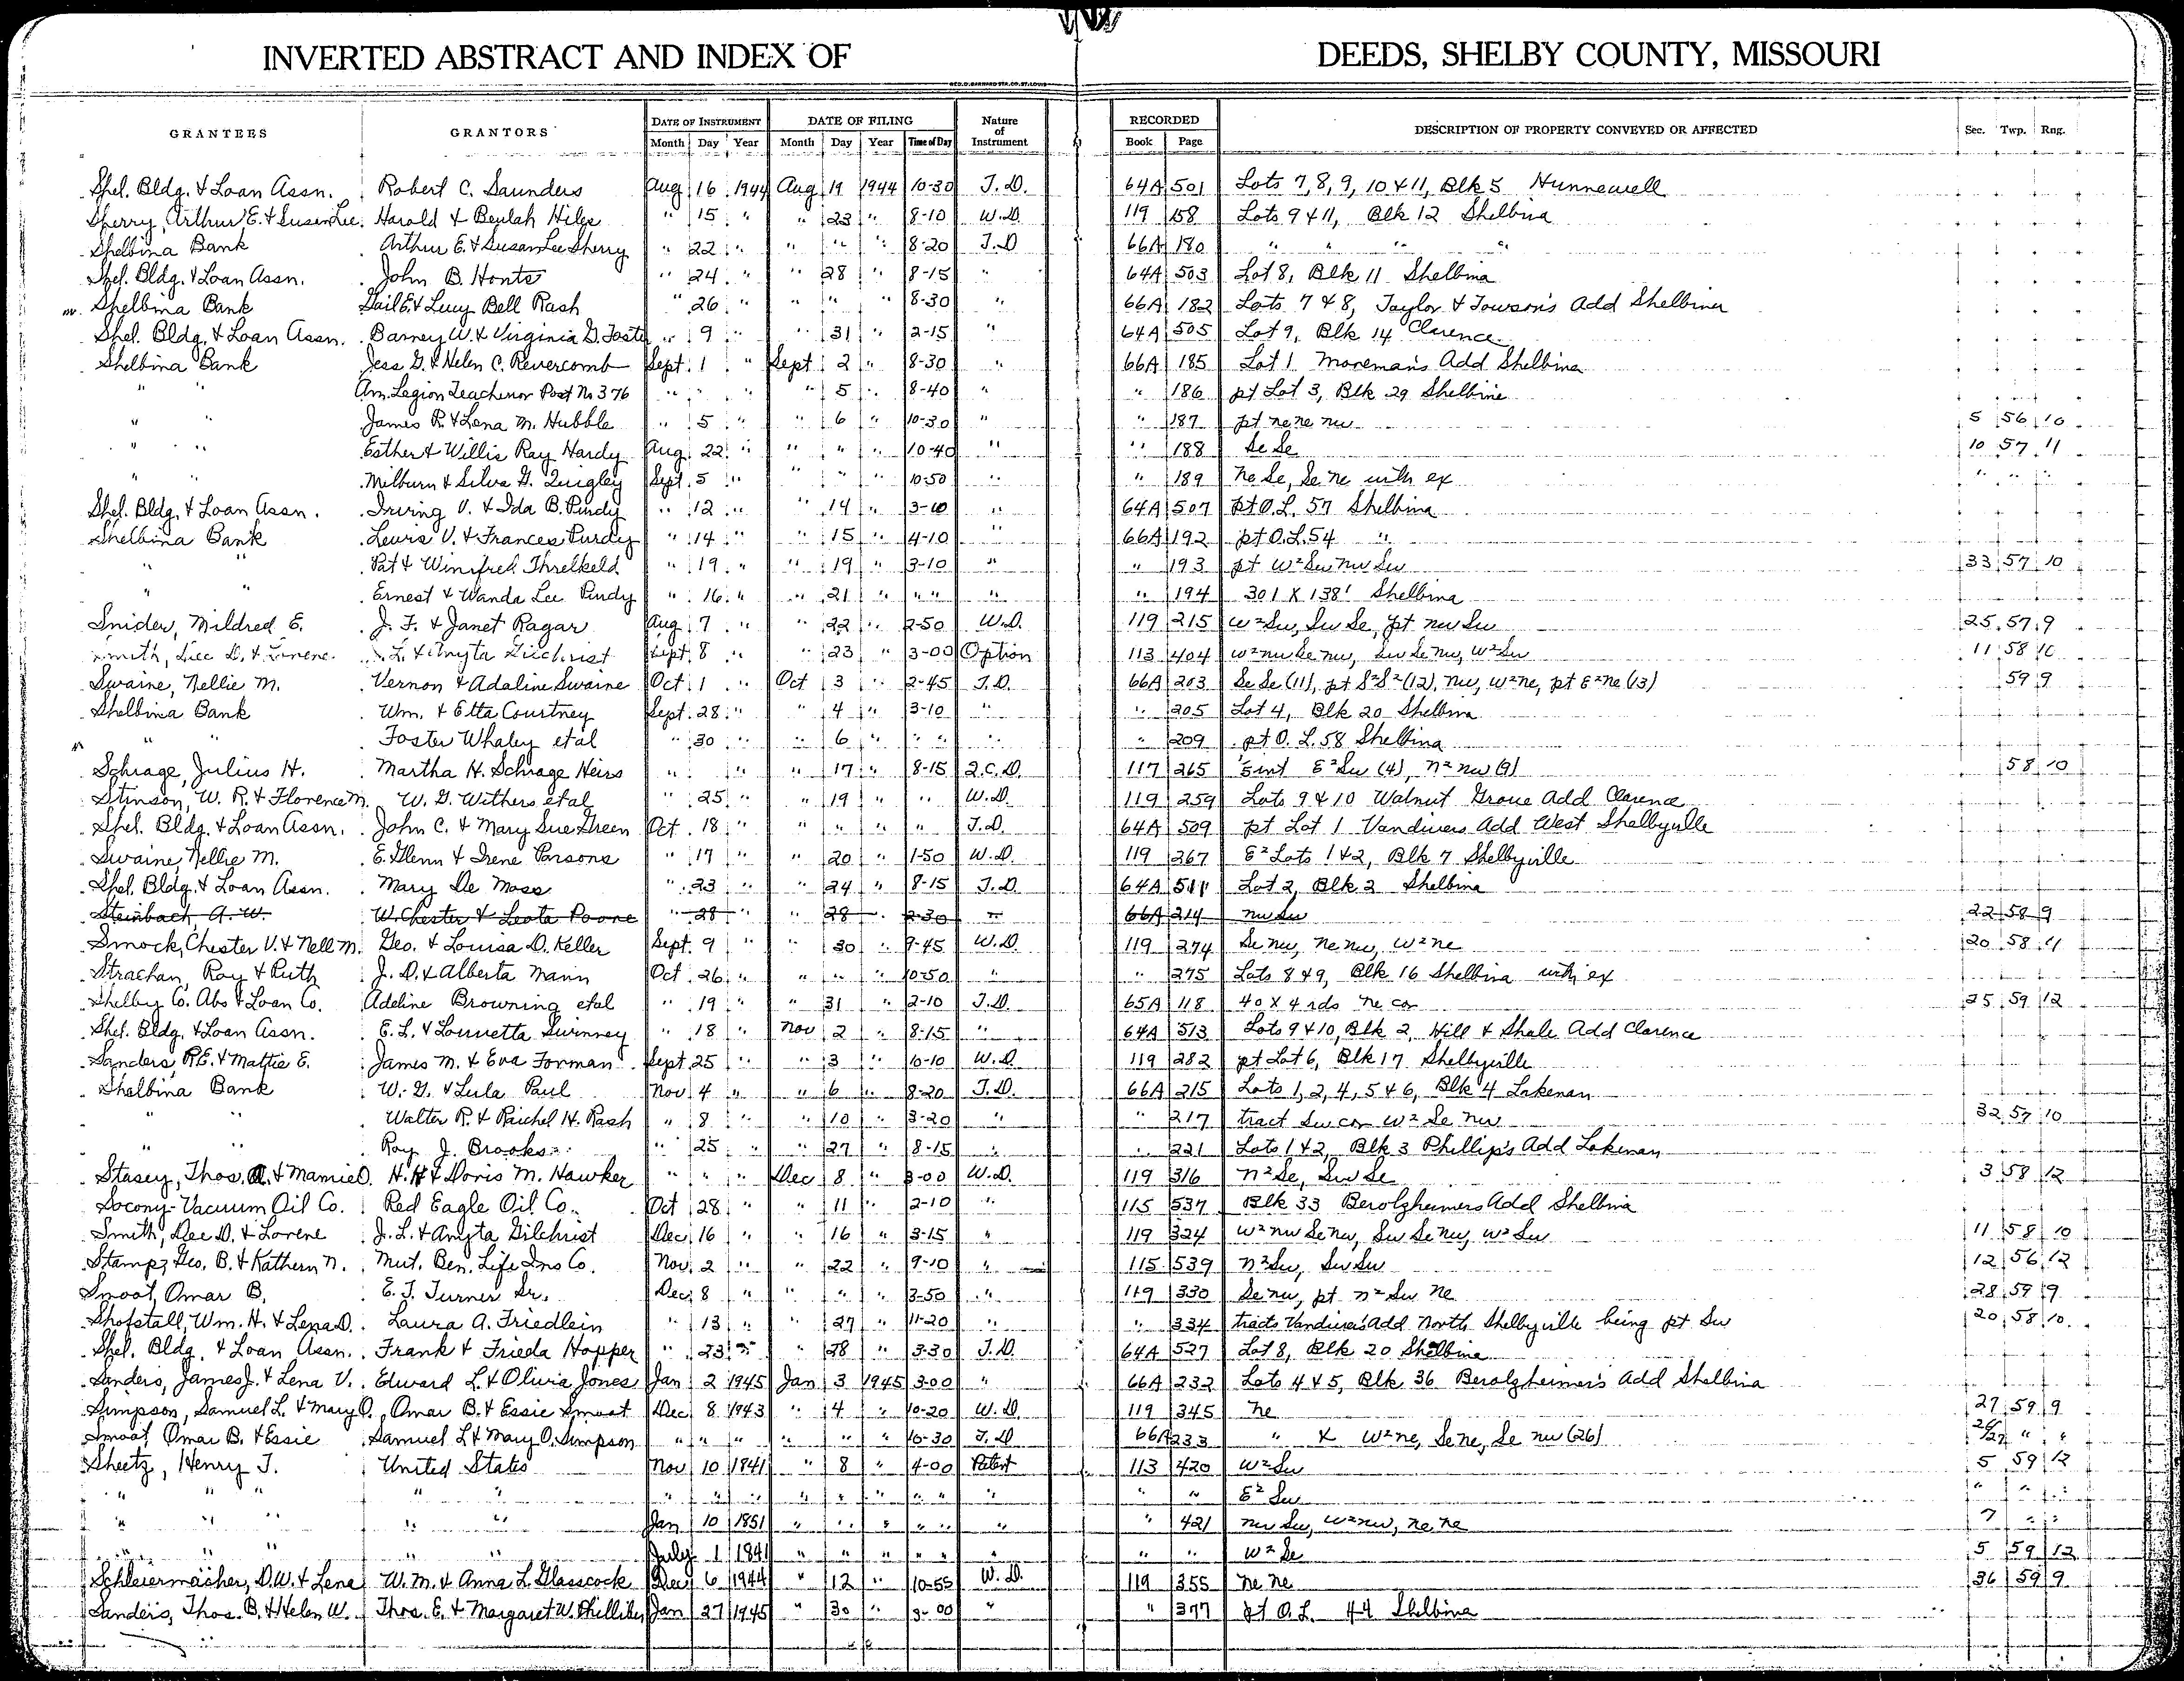 INVERTED ABSTRACT AND INDEX OF DEEDS, SHELBY COUNTY, MISSOURI
GEO. D. BARNARD STA. CO. ST. LOUIS
GRANTEES GRANTORS DATE OF INSTRUMENT DATE OF FILING Nature of Instrument RECORDED DESCRIPTION OF PROPERTY CONVEYED OR AFFECTED Sec. Twp. Rng.
Month Day Year Month Day Year Time of Day Book Page
Shel. Bldg. & Loan Assn. Robert C. Saunders Aug 16 1944 Aug 19 1944 10-30 T.D. 64A 501 Lots 7, 8, 9, 10 & 11, Blk 5 Hunnewell
Sherry, Arthur E. & Susan Lee Harold & Beulah Hiles " 15 " " 23 " 8-10 W.D. 119 158 Lots 9 & 11, Blk 12 Shelbina
Shelbina Bank Arthur E. & Susan Lee Sherry " 22 " " " " 8-20 T.D 66A 180 " " " "
Shel. Bldg. & Loan Assn. John B. Honts " 24 " " 28 " 8-15 " 64A 503 Lot 8, Blk 11 Shelbina
Shelbina Bank Gail E. & Lucy Bell Rash " 26 " " " " 8-30 " 66A 182 Lots 7 & 8, Taylor & Towson's Add Shelbina
Shel. Bldg. & Loan Assn. Barney W. & Virginia G. Foster " 9 " " 31 " 2-15 " 64A 505 Lot 9, Blk 14 Clarence
Shelbina Bank Jess G. & Helen C. Revercomb Sept 1 " Sept 2 " 8-30 " 66A 185 Lot 1 Moreman's Add Shelbina
" " Am. Legion Teachenor Post No 376 " " " " 5 " 8-40 " " 186 pt Lot 3, Blk 29 Shelbina
" " James R. & Lena M. Hubble " 5 " " 6 " 10-30 " " 187 pt ne ne nw 5 56 10
" " Esther & Willis Ray Hardy Aug 22 " " " " 10-40 " " 188 Se Se 10 57 11
" " Milburn & Silva G. Quigley Sept 5 " " " " 10-50 " " 189 ne Se, Se ne with ex " " "
Shel. Bldg. & Loan Assn. Irving V. & Ida B. Purdy " 12 " " 14 " 3-10 " 64A 507 pt O.L. 57 Shelbina
Shelbina Bank Lewis V. & Frances Purdy " 14 " " 15 " 4-10 " 66A 192 pt O.L. 54 "
" " Pat & Winifred Threlkeld " 19 " " 19 " 3-10 " " 193 pt W² Sw nw Sw 33 57 10
" " Ernest & Wanda Lee Purdy " 16 " " 21 " " " " " 194 301 X 138' Shelbina
Snider, Mildred E. J. F. & Janet Ragar Aug 7 " " 22 " 2-50 W.D. 119 215 W² Sw, Sw Se, pt nw Sw 25 57 9
Smith, Dee D. & Lorene J. L. & Anyta Gilchrist Sept 8 " " 23 " 3-00 Option 113 404 W² nw Se nw, Sw Se nw, W² Sw 11 58 10
Swaine, Nellie M. Vernon & Adaline Swaine Oct 1 " Oct 3 " 2-45 T.D. 66A 203 Se Se (11), pt S² S² (12), nw, W² ne, pt E² ne (13) 59 9
Shelbina Bank Wm. & Etta Courtney Sept 28 " " 4 " 3-10 " " 205 Lot 4, Blk 20 Shelbina
" " Foster Whaley etal " 30 " " 6 " " " " " 209 pt O. L. 58 Shelbina
Schrage, Julius H. Martha H. Schrage Heirs " " " 17 " 8-15 Q.C.D. 117 265 int E² Sw (4), n² nw (9) 58 10
Stinson, W. R. & Florence M. W. G. Withers etal " 25 " " 19 " " W.D. 119 259 Lots 9 & 10 Walnut Grove Add Clarence
Shel. Bldg. & Loan Assn. John C. & Mary Sue Green Oct 18 " " " " " T.D. 64A 509 pt Lot 1 Vandivers Add West Shelbyville
Swaine, Nellie M. E. Glenn & Irene Parsons " 17 " " 20 " 1-50 W.D. 119 267 E² Lots 1 & 2, Blk 7 Shelbyville
Shel. Bldg. & Loan Assn. Mary De Moss " 23 " " 24 " 8-15 T.D. 64A 511 Lot 2, Blk 2 Shelbina
Steinbach, A. W. W. Chester & Leota Poore " 28 " 28 " 2-30 " 66A 214 nw Sw 22 58 9
Smock, Chester V. & Nell M. Geo. & Louisa D. Keller Sept 9 " " 30 " 9-45 W.D. 119 274 Se nw, ne nw, W² ne 20 58 11
Strachan, Roy & Ruth J. D. & Alberta Mann Oct 26 " " " " 10-50 " " 275 Lots 8 & 9, Blk 16 Shelbina with ex
Shelby Co. Abs & Loan Co. Adeline Browning etal " 19 " " 31 " 2-10 T.D. 65A 118 40 X 4 rds ne cor 25 59 12
Shel. Bldg. & Loan Assn. E. L. & Louvetta Swinney " 18 " Nov 2 " 8-15 " 64A 513 Lots 9 & 10, Blk 2, Hill & Shale Add Clarence
Sanders, R.E. & Mattie E. James M. & Eva Forman Sept 25 " " 3 " 10-10 W.D. 119 282 pt Lot 6, Blk 17 Shelbyville
Shelbina Bank W. G. & Lula Paul Nov 4 " " 6 " 8-20 T.D. 66A 215 Lots 1, 2, 4, 5 & 6, Blk 4 Lakenan
" " Walter R. & Raichel H. Rash " 8 " " 10 " 3-20 " " 217 tract Sw cor W² Se nw 32 57 10
" " Roy J. Brooks " 25 " " 27 " 8-15 " " 221 Lots 1 & 2, Blk 3 Phillip's Add Lakenan
Stasey, Thos. A. & Mamie O. H. H. & Doris M. Hawker " " " Dec 8 " 3-00 W.D. 119 316 n² Se, Sw Se 3 58 12
Socony-Vacuum Oil Co. Red Eagle Oil Co. Oct 28 " " 11 " 2-10 " 115 537 Blk 33 Berolzheimers Add Shelbina
Smith, Dee D. & Lorene J. L. & Anyta Gilchrist Dec 16 " " 16 " 3-15 " 119 324 W² nw Se nw, Sw Se nw, W² Sw 11 58 10
Stamps, Geo. B. & Kathern N. Mut. Ben. Life Ins Co. Nov 2 " " 22 " 9-10 " 115 539 n² Sw, Sw Sw 12 56 12
Smoot, Omar B. E. T. Turner Sr. Dec 8 " " " " 3-50 " 119 330 Se nw, pt n² Sw ne 28 59 9
Shofstall, Wm. H. & Lena D. Laura A. Friedlein " 13 " " 27 " 11-20 " " 334 tracts Vandivers Add North Shelbyville being pt Sw 20 58 10
Shel. Bldg. & Loan Assn. Frank & Frieda Hopper " 23 " " 28 " 3-30 T.D. 64A 527 Lot 8, Blk 20 Shelbina
Sanders, James J. & Lena V. Edward L. & Olivia Jones Jan 2 1945 Jan 3 1945 3-00 " 66A 232 Lots 4 & 5, Blk 36 Berolzheimer's Add Shelbina
Simpson, Samuel L. & Mary O. Omar B. & Essie Smoot Dec 8 1943 " 4 " 10-20 W.D. 119 345 ne 27 59 9
Smoot, Omar B. & Essie Samuel L & Mary O. Simpson " " " " " " 10-30 T.D 66A 233 " & W² ne, Se ne, Se nw (26) 26/27 " "
Sheetz, Henry J. United States Nov 10 1841 " 8 " 4-00 Patent 113 420 W² Sw 5 59 12
" " " " " " " " " " " " " " " " " E² Sw " " "
" " " " " Jan 10 1851 " " " " " " " 421 nw Sw, W² nw, ne ne 7 " "
" " " " " July 1 1841 " " " " " " " " W² Se 5 59 12
Schleiermacher, D.W. & Lena W. M. & Anna L. Glasscock Dec 6 1944 " 12 " 10-55 W.D. 119 355 ne ne 36 59 9
Sanders, Thos. B. & Helen W. Thos. E. & Margaret W. Phillips Jan 27 1945 " 30 " 3-00 " " 377 pt O.L. 44 Shelbina